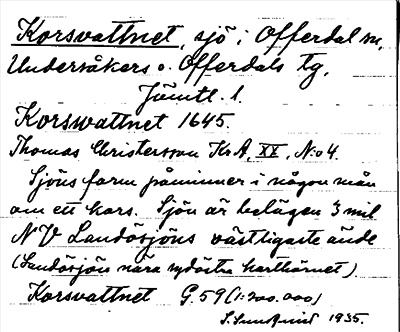 Korsvattnet, sjö i Offerdal sn,
Undersåkers o. Offerdals tg,
Jämtl. l.
Korswattnet 1645.
Thomas Christersson KrA, XX, No 4.
Sjöns form påminner i någon mån
om ett kors. Sjön är belägen 3 mil
NV Landösjöns västligaste ände
(Landösjön nära sydöstra karthörnet).
Korsvattnet G. 59 (1:200.000)
S. Sundquist 1935.